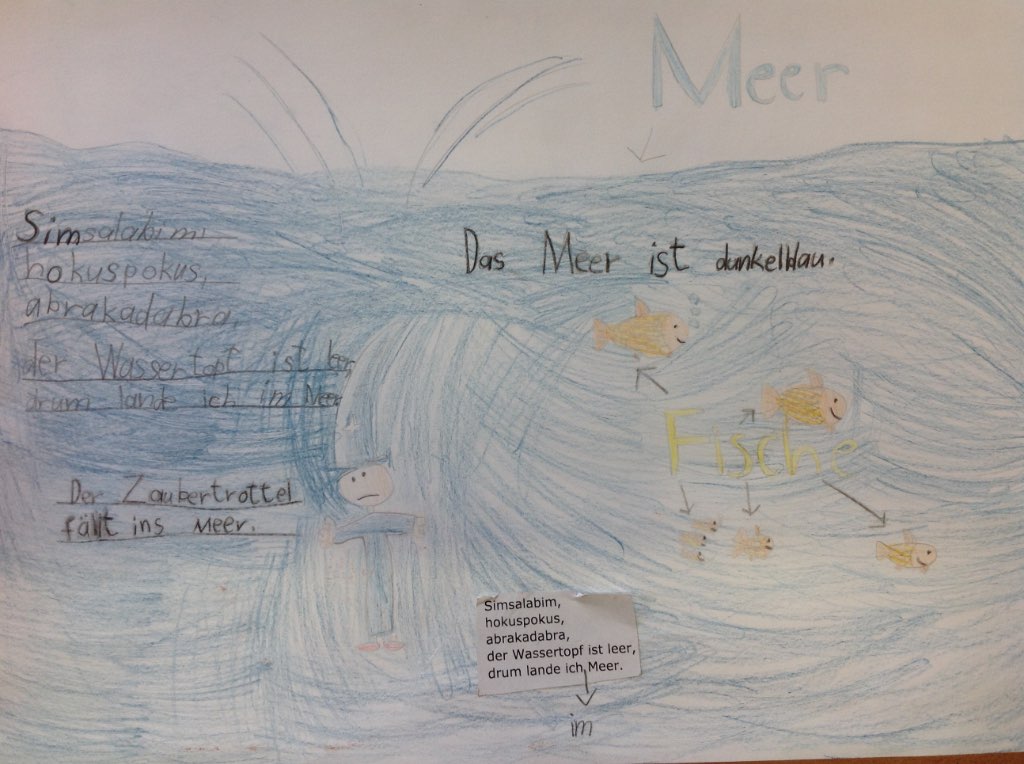 Meer
Simsalabim,
hokuspokus,
abrakadabra,
der Wassertopf ist leer,
drum lande ich im Meer
Das Meer ist dunkelblau.
Fische
Der Zaubertrottel
fällt ins Meer.
Simsalabim,
hokuspokus,
abrakadabra,
der Wassertopf ist leer,
drum lande ich Meer.
im